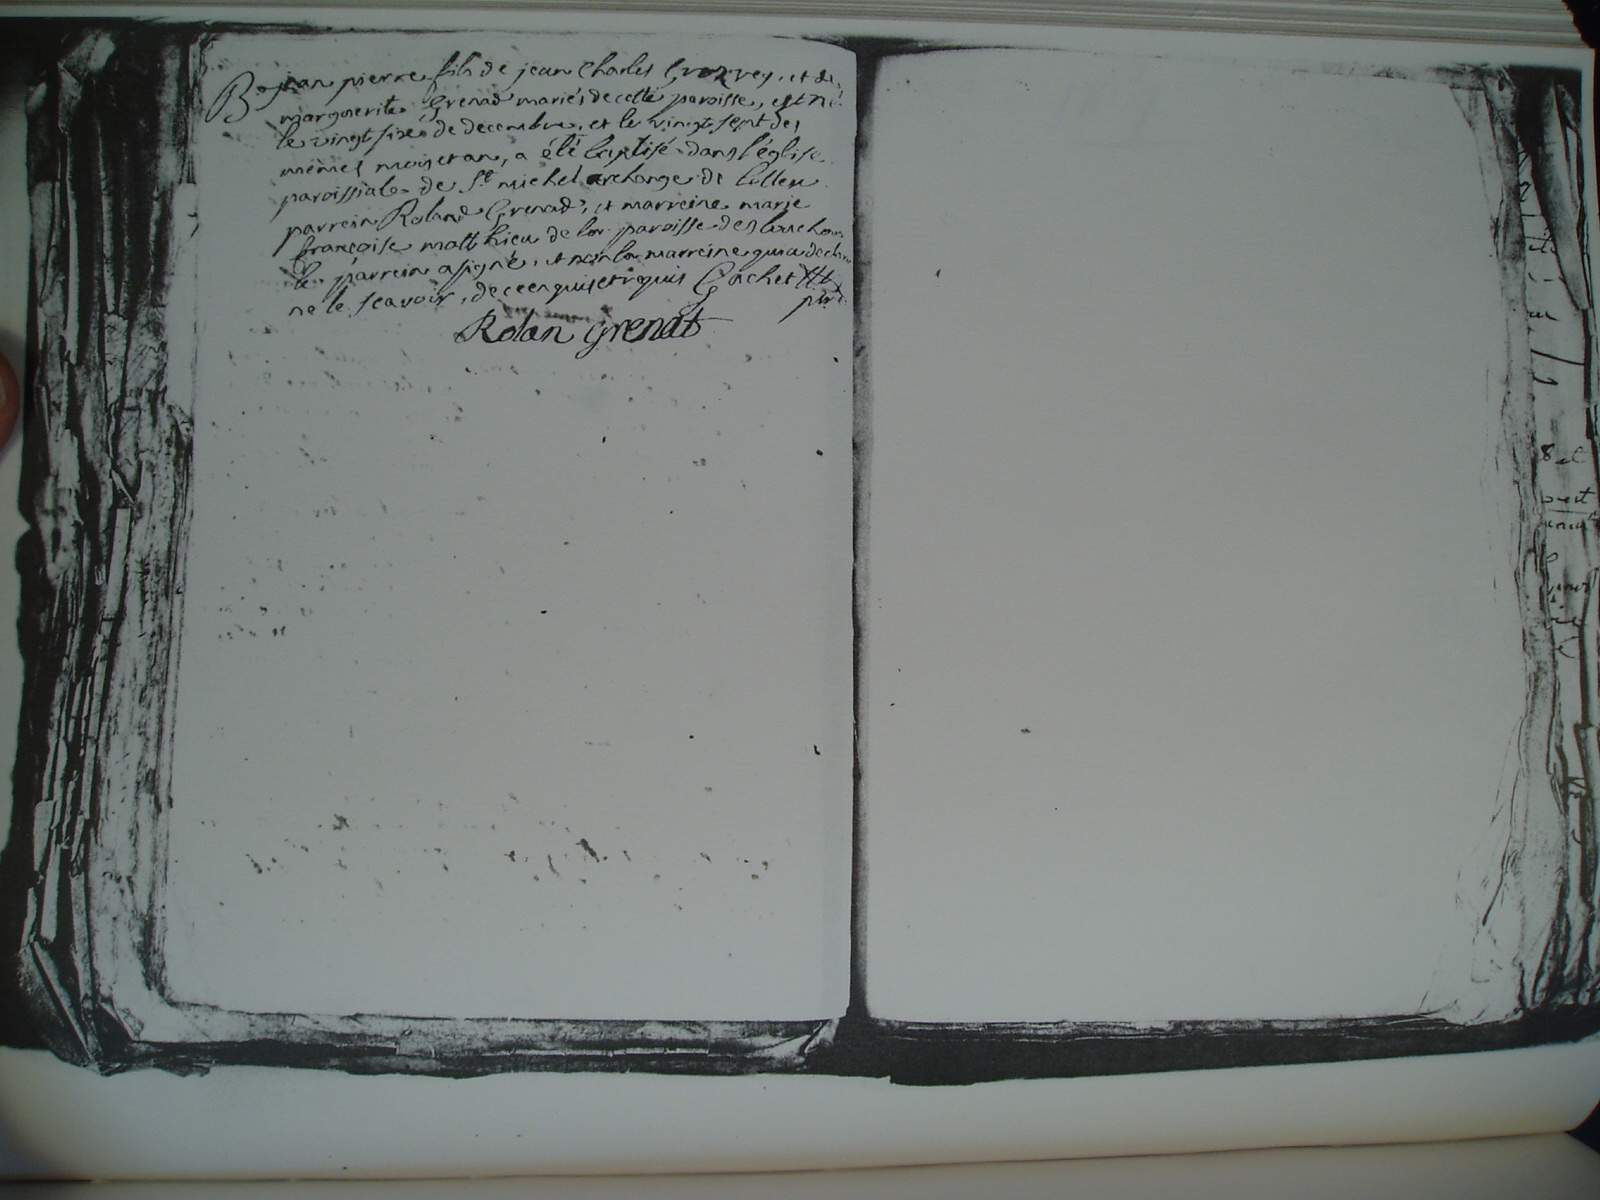 B jean pierre fils de jean Charles Grozrey, et de
marguerite Grenad mariés de cette paroisse, est né
le vingt sixe de decembre, et le vingt sept des
mêmes mois et an, a été baptisé dans l'église
paroissiale de St michel archange de
parrein Roland Grenad, et marreine marie
françoise matthieu de la paroisse des
le parrein a signé, et non la marreine qui a declaré
ne le scavoir, de ce enquise et requis Cachet
Rolan Grenat